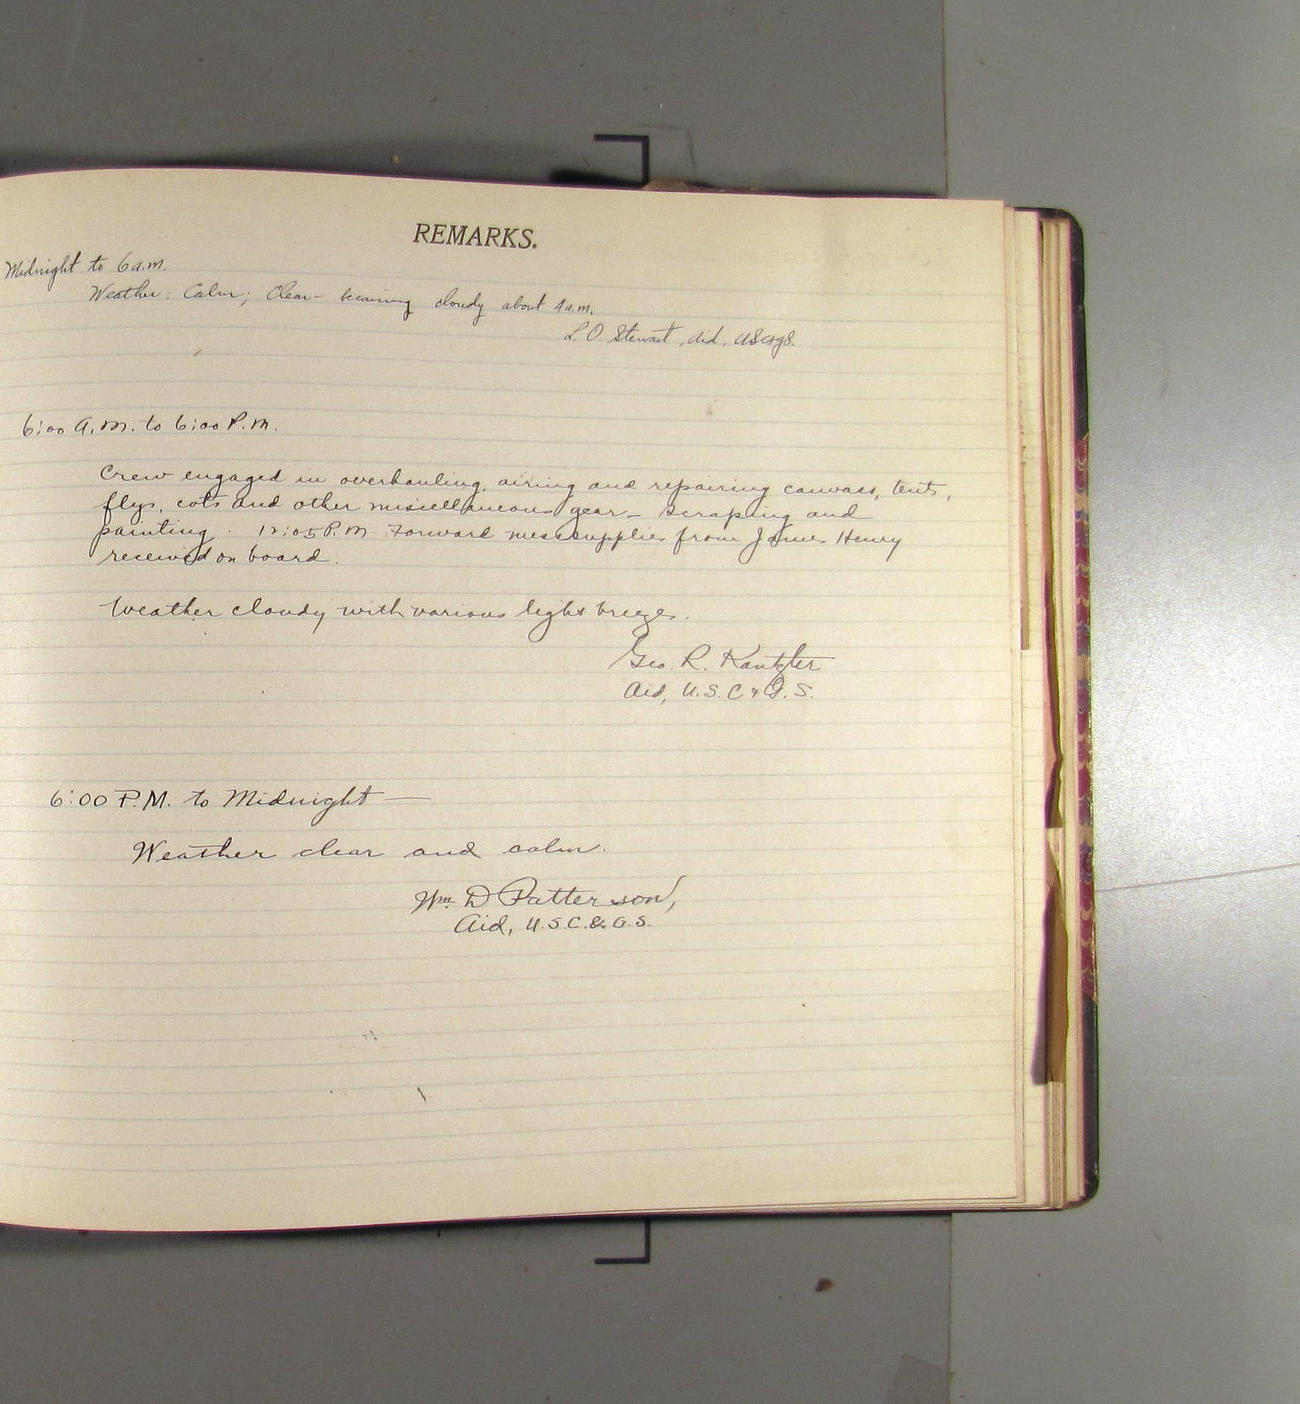 REMARKS.
Midnight to 6 a.m.
Weather: Calm; Clear - becoming cloudy about 4 a.m.
L. O. Stewart, Aid, USC&GS.
6:00 A.M. to 6:00 P.M.
Crew engaged in overhauling, airing and repairing canvass, tents,
flys, cots and other miscellaneous gear - scraping and
painting. 12:05 P.M. Forward mess supplies from James Henry
received on board.
Weather cloudy with various light breezes.
Geo. R. Kantzler
Aid, U.S.C & G.S.
6:00 P.M. to Midnight —
Weather clear and calm.
Wm. D Patterson,
Aid, U.S.C.& G.S.